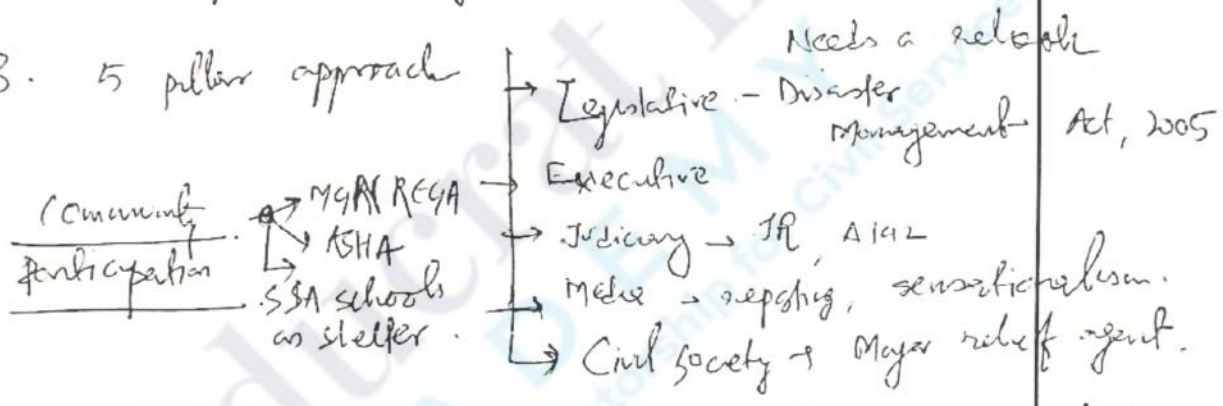 Needs a relook
3. 5 pillar approach
→ Legislative - Disaster
Management Act, 2005
→ Executive
→ Judiciary → JR, A142
→ Media → reporting, sensationalism.
→ Civil Society → Major relief agent.
Community
Participation
→ MGNREGA
→ ASHA
→ SSA schools
as shelter.